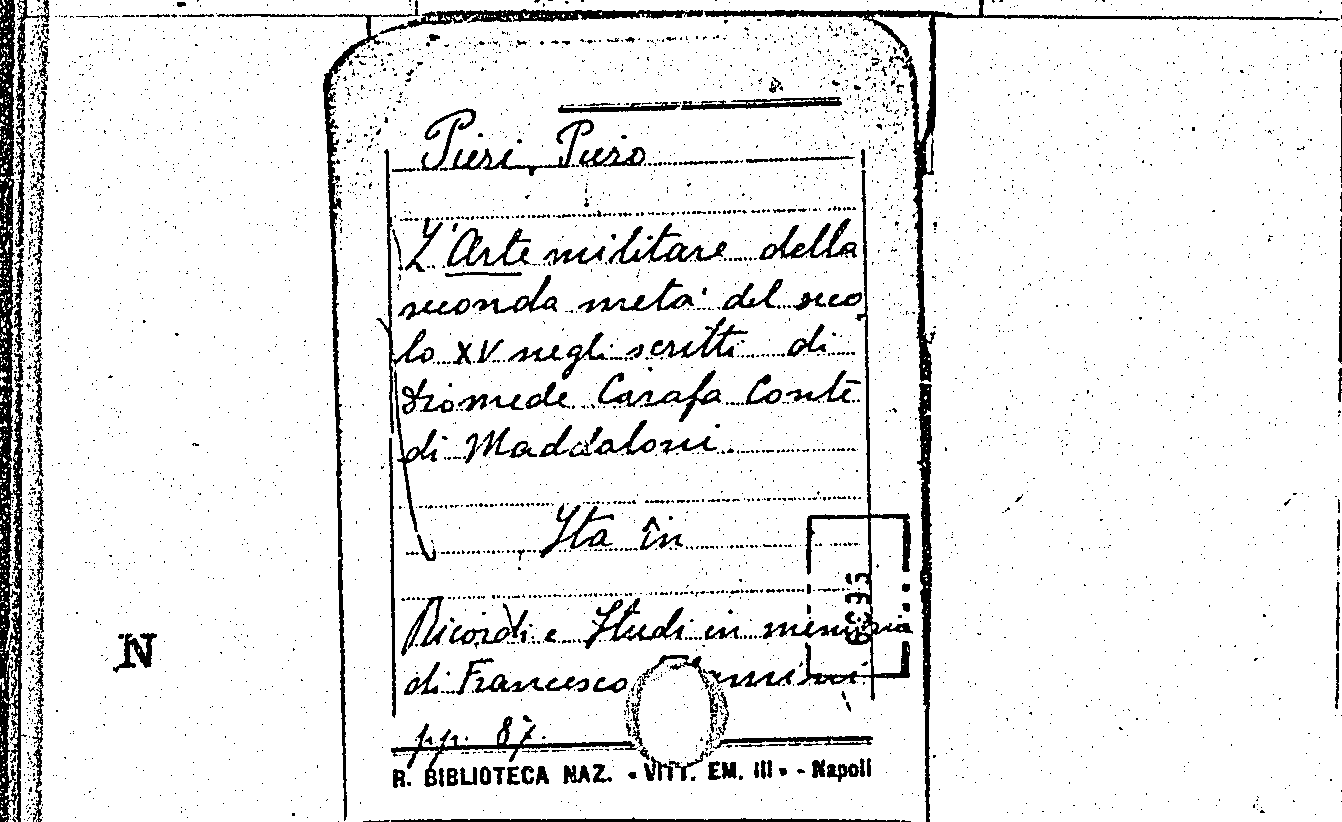 Pieri, Piero
L'Arte militare della
seconda metà del seco
lo XV negli scritti di
Diomede Carafa Conte
di Maddaloni.
Sta in
Ricordi e Studi in memoria
di Francesco
pp. 87.
R. BIBLIOTECA NAZ. « VITT. EM. III » - Napoli
N